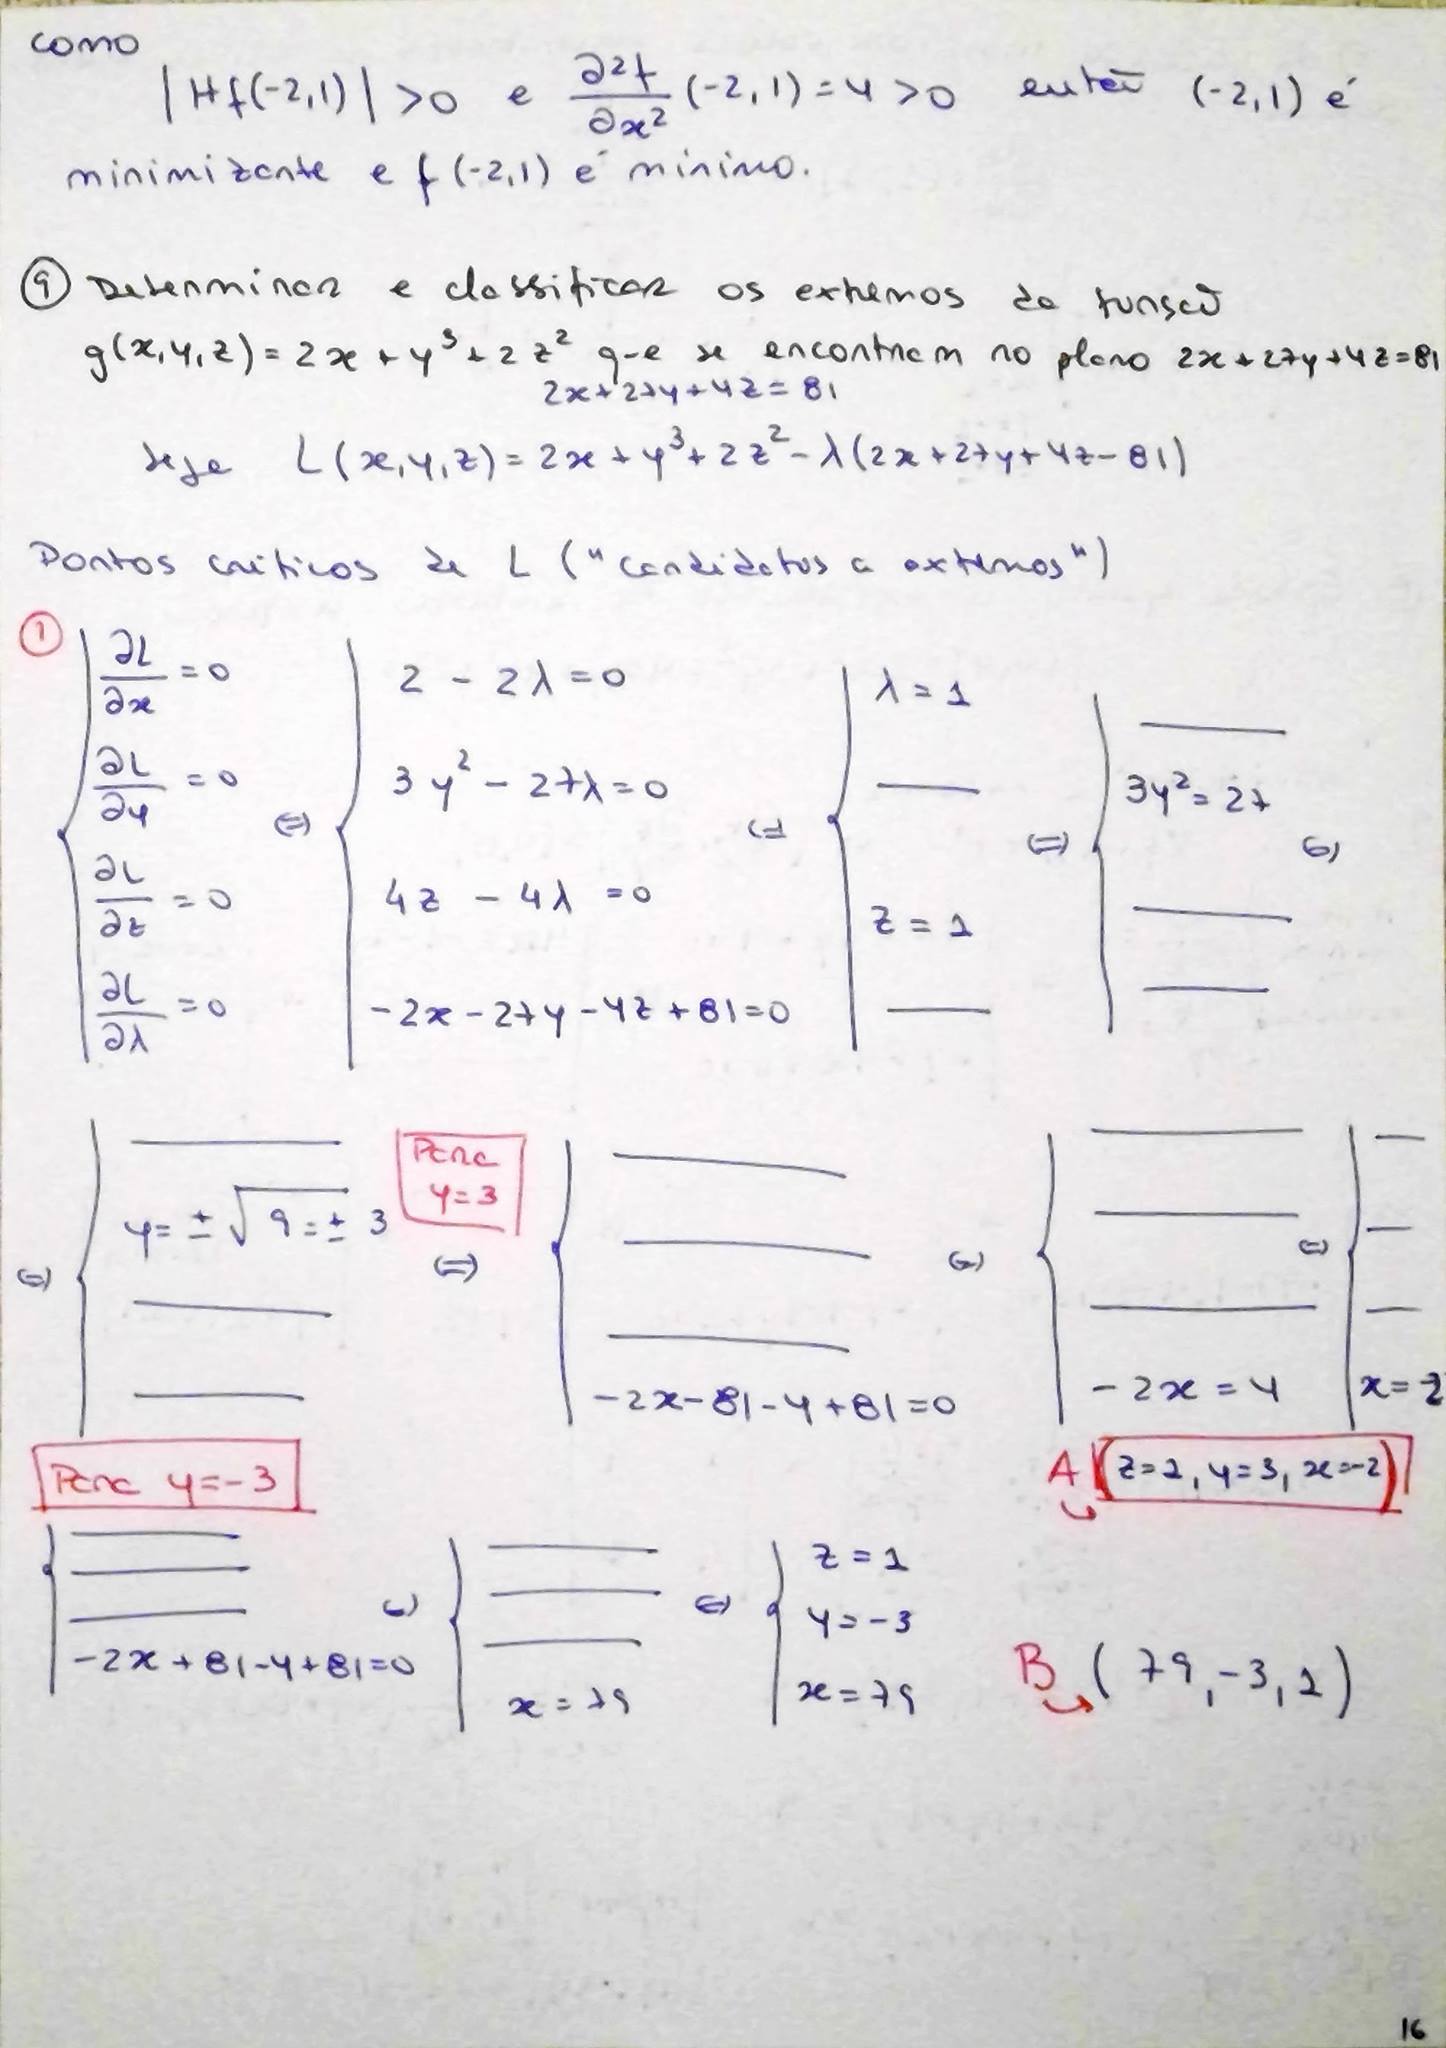 como
|Hf(-2,1)| >0 e ∂²f/∂x² (-2,1)=4 >0 então (-2,1) é
minimizante e f(-2,1) é mínimo.
⑨ Determinar e classificar os extremos da função
g(x,y,z) = 2x + y³ + 2z² que se encontram no plano 2x+27y+4z=81
2x+27y+4z=81
seja L(x,y,z) = 2x + y³ + 2z² - λ(2x+27y+4z-81)
Pontos críticos de L ("candidatos a extremos")
① { ∂L/∂x =0 { 2 - 2λ = 0 { λ = 1 { ———
∂L/∂y =0 3y² - 27λ = 0 ——— 3y² = 27
(=) (=) (=) (=)
∂L/∂z =0 4z - 4λ = 0 z = 1 ———
∂L/∂λ =0 -2x-27y-4z+81=0 ——— ———
Para y=3
(=) { y= ± √9 = ± 3 (=) { (=) { (=) {
-2x-81-4+81=0 -2x = 4 x=-2
Para y=-3 A (z=1, y=3, x=-2)
{ -2x+81-4+81=0 (=) { x = 79 (=) { z = 1
y = -3
x = 79
B (79,-3,1)
16